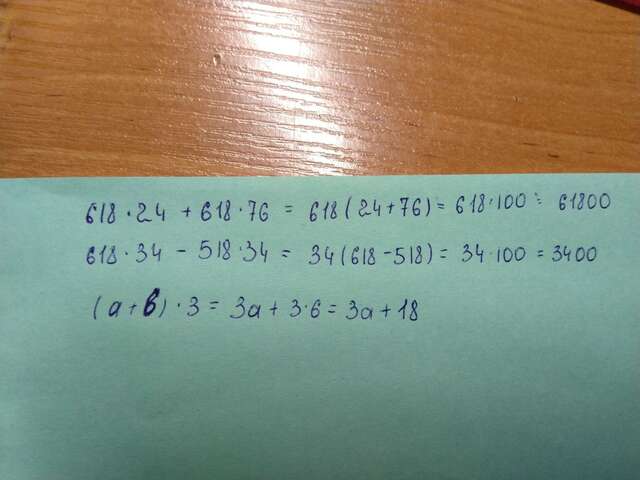 618·24 + 618·76 = 618(24+76) = 618·100 = 61800
618·34 - 518·34 = 34(618-518) = 34·100 = 3400
(a+6)·3 = 3a + 3·6 = 3a + 18